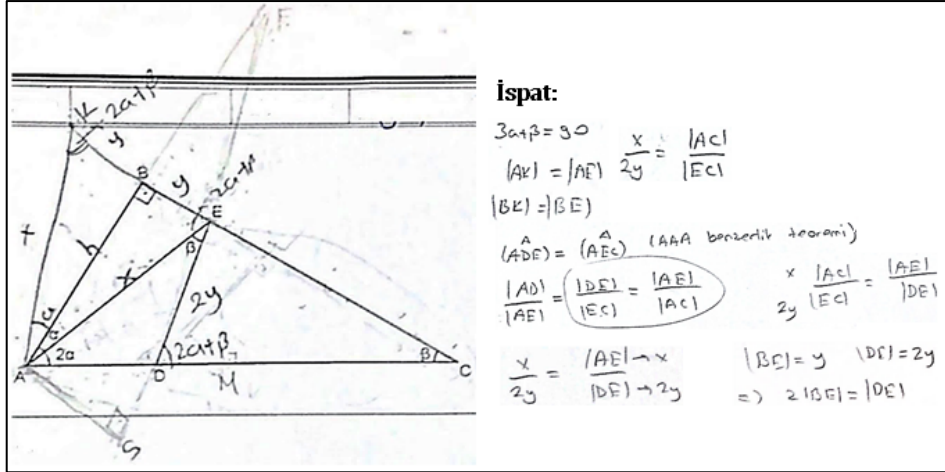 F
K
2a+β
y
B
y
2a+β
E
x
h
x
β
a
a
2y
2a
2a+β
β
A
D
M
C
S
İspat:
3a+β=90
x/2y = |AC|/|EC|
|AK| = |AE|
|BK|=|BE|
(ADE) = (AEC) (AAA benzerlik teoremi)
|AD|/|AE| = |DE|/|EC| = |AE|/|AC|
x/2y |AC|/|EC| = |AE|/|DE|
x/2y = |AE|→x/|DE|→2y
|BE|=y |DE|=2y
=> 2|BE|=|DE|